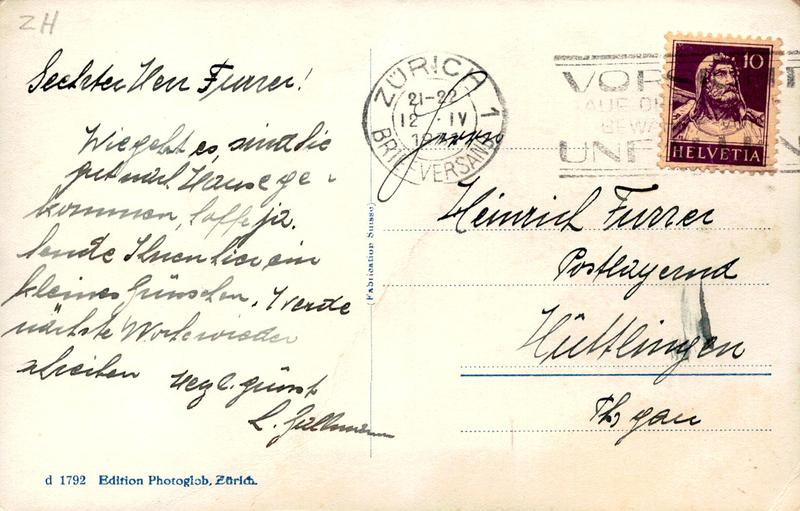 ZH
Geehrter Herr Furrer!
Wie geht es, sind Sie
gut nach Hause ge-
kommen, hoffe ja.
sende Ihnen hier ein
kleines
Werde
nächste Woche wieder
schreiben
L.
ZÜRICH 1
21-22
12 IV
BRIEFVERSAND
VOR
AUF
BEWA
UNF
10
HELVETIA
Herrn
Heinrich Furrer
Hüttlingen
Thgau
(Fabrication Suisse)
d 1792 Edition Photoglob, Zürich.